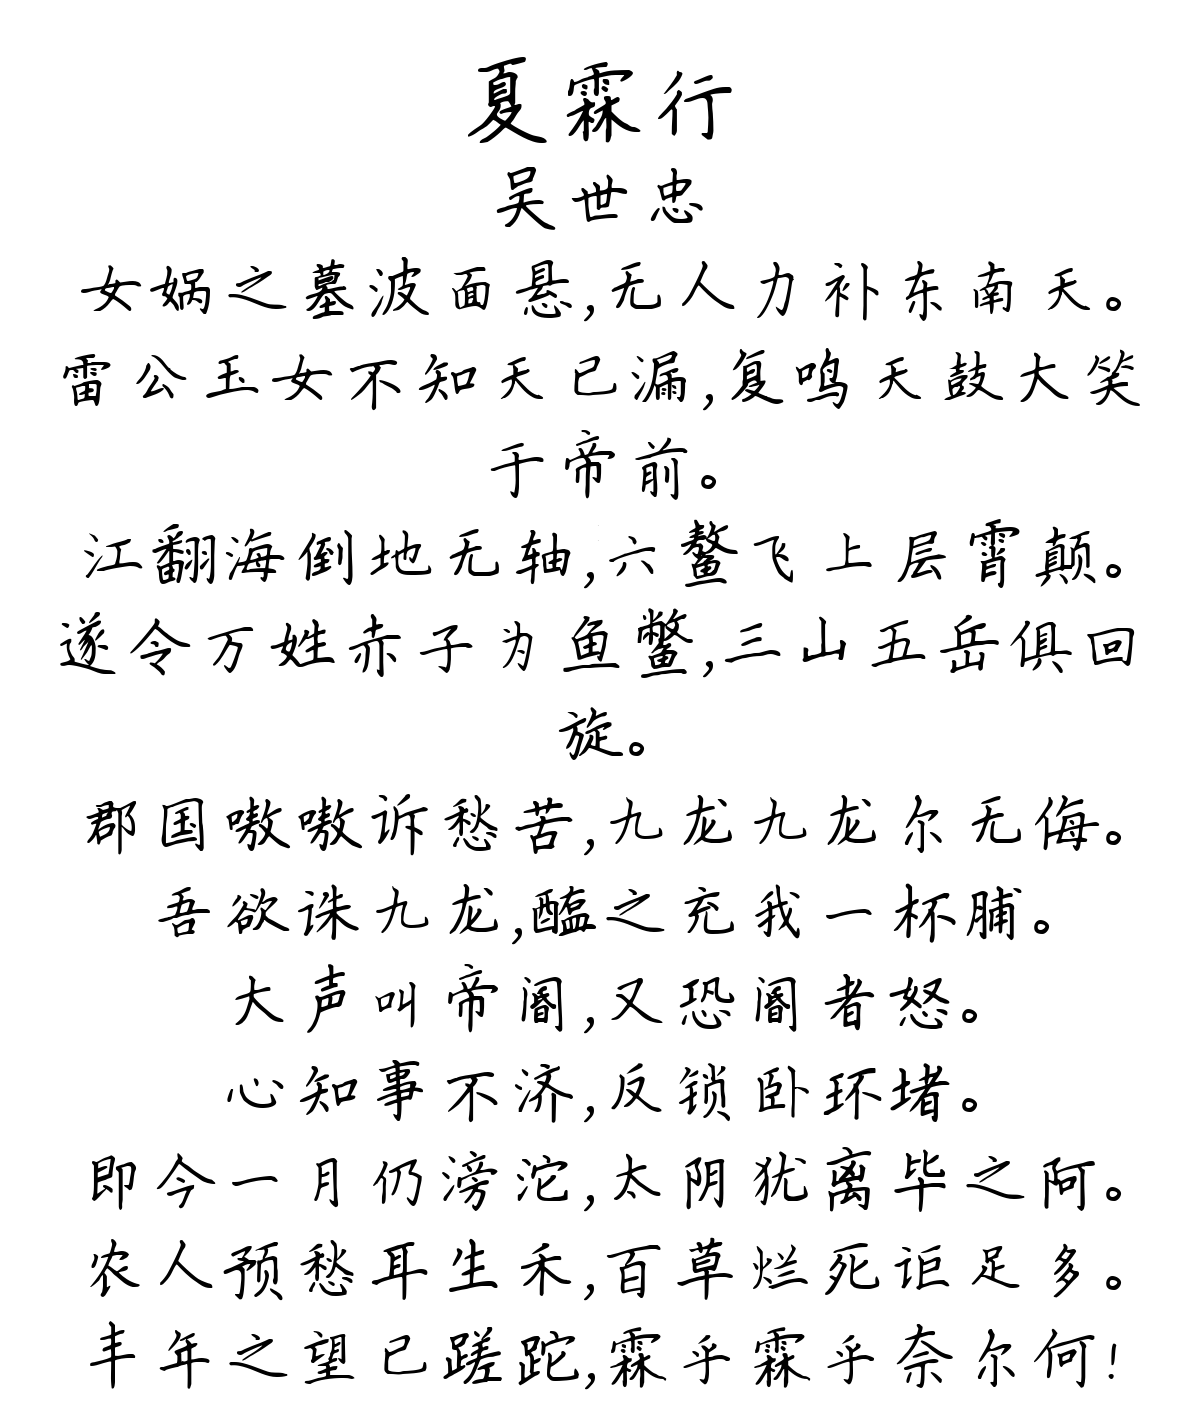 夏霖行
吴世忠
女娲之墓波面悬,无人力补东南天。
雷公玉女不知天已漏,复鸣天鼓大笑
于帝前。
江翻海倒地无轴,六鳌飞上层霄颠。
遂令万姓赤子为鱼鳖,三山五岳俱回
旋。
郡国嗷嗷诉愁苦,九龙九龙尔无侮。
吾欲诛九龙,醢之充我一杯脯。
大声叫帝阍,又恐阍者怒。
心知事不济,反锁卧环堵。
即今一月仍滂沱,太阴犹离毕之阿。
农人预愁耳生禾,百草烂死讵足多。
丰年之望已蹉跎,霖乎霖乎奈尔何!